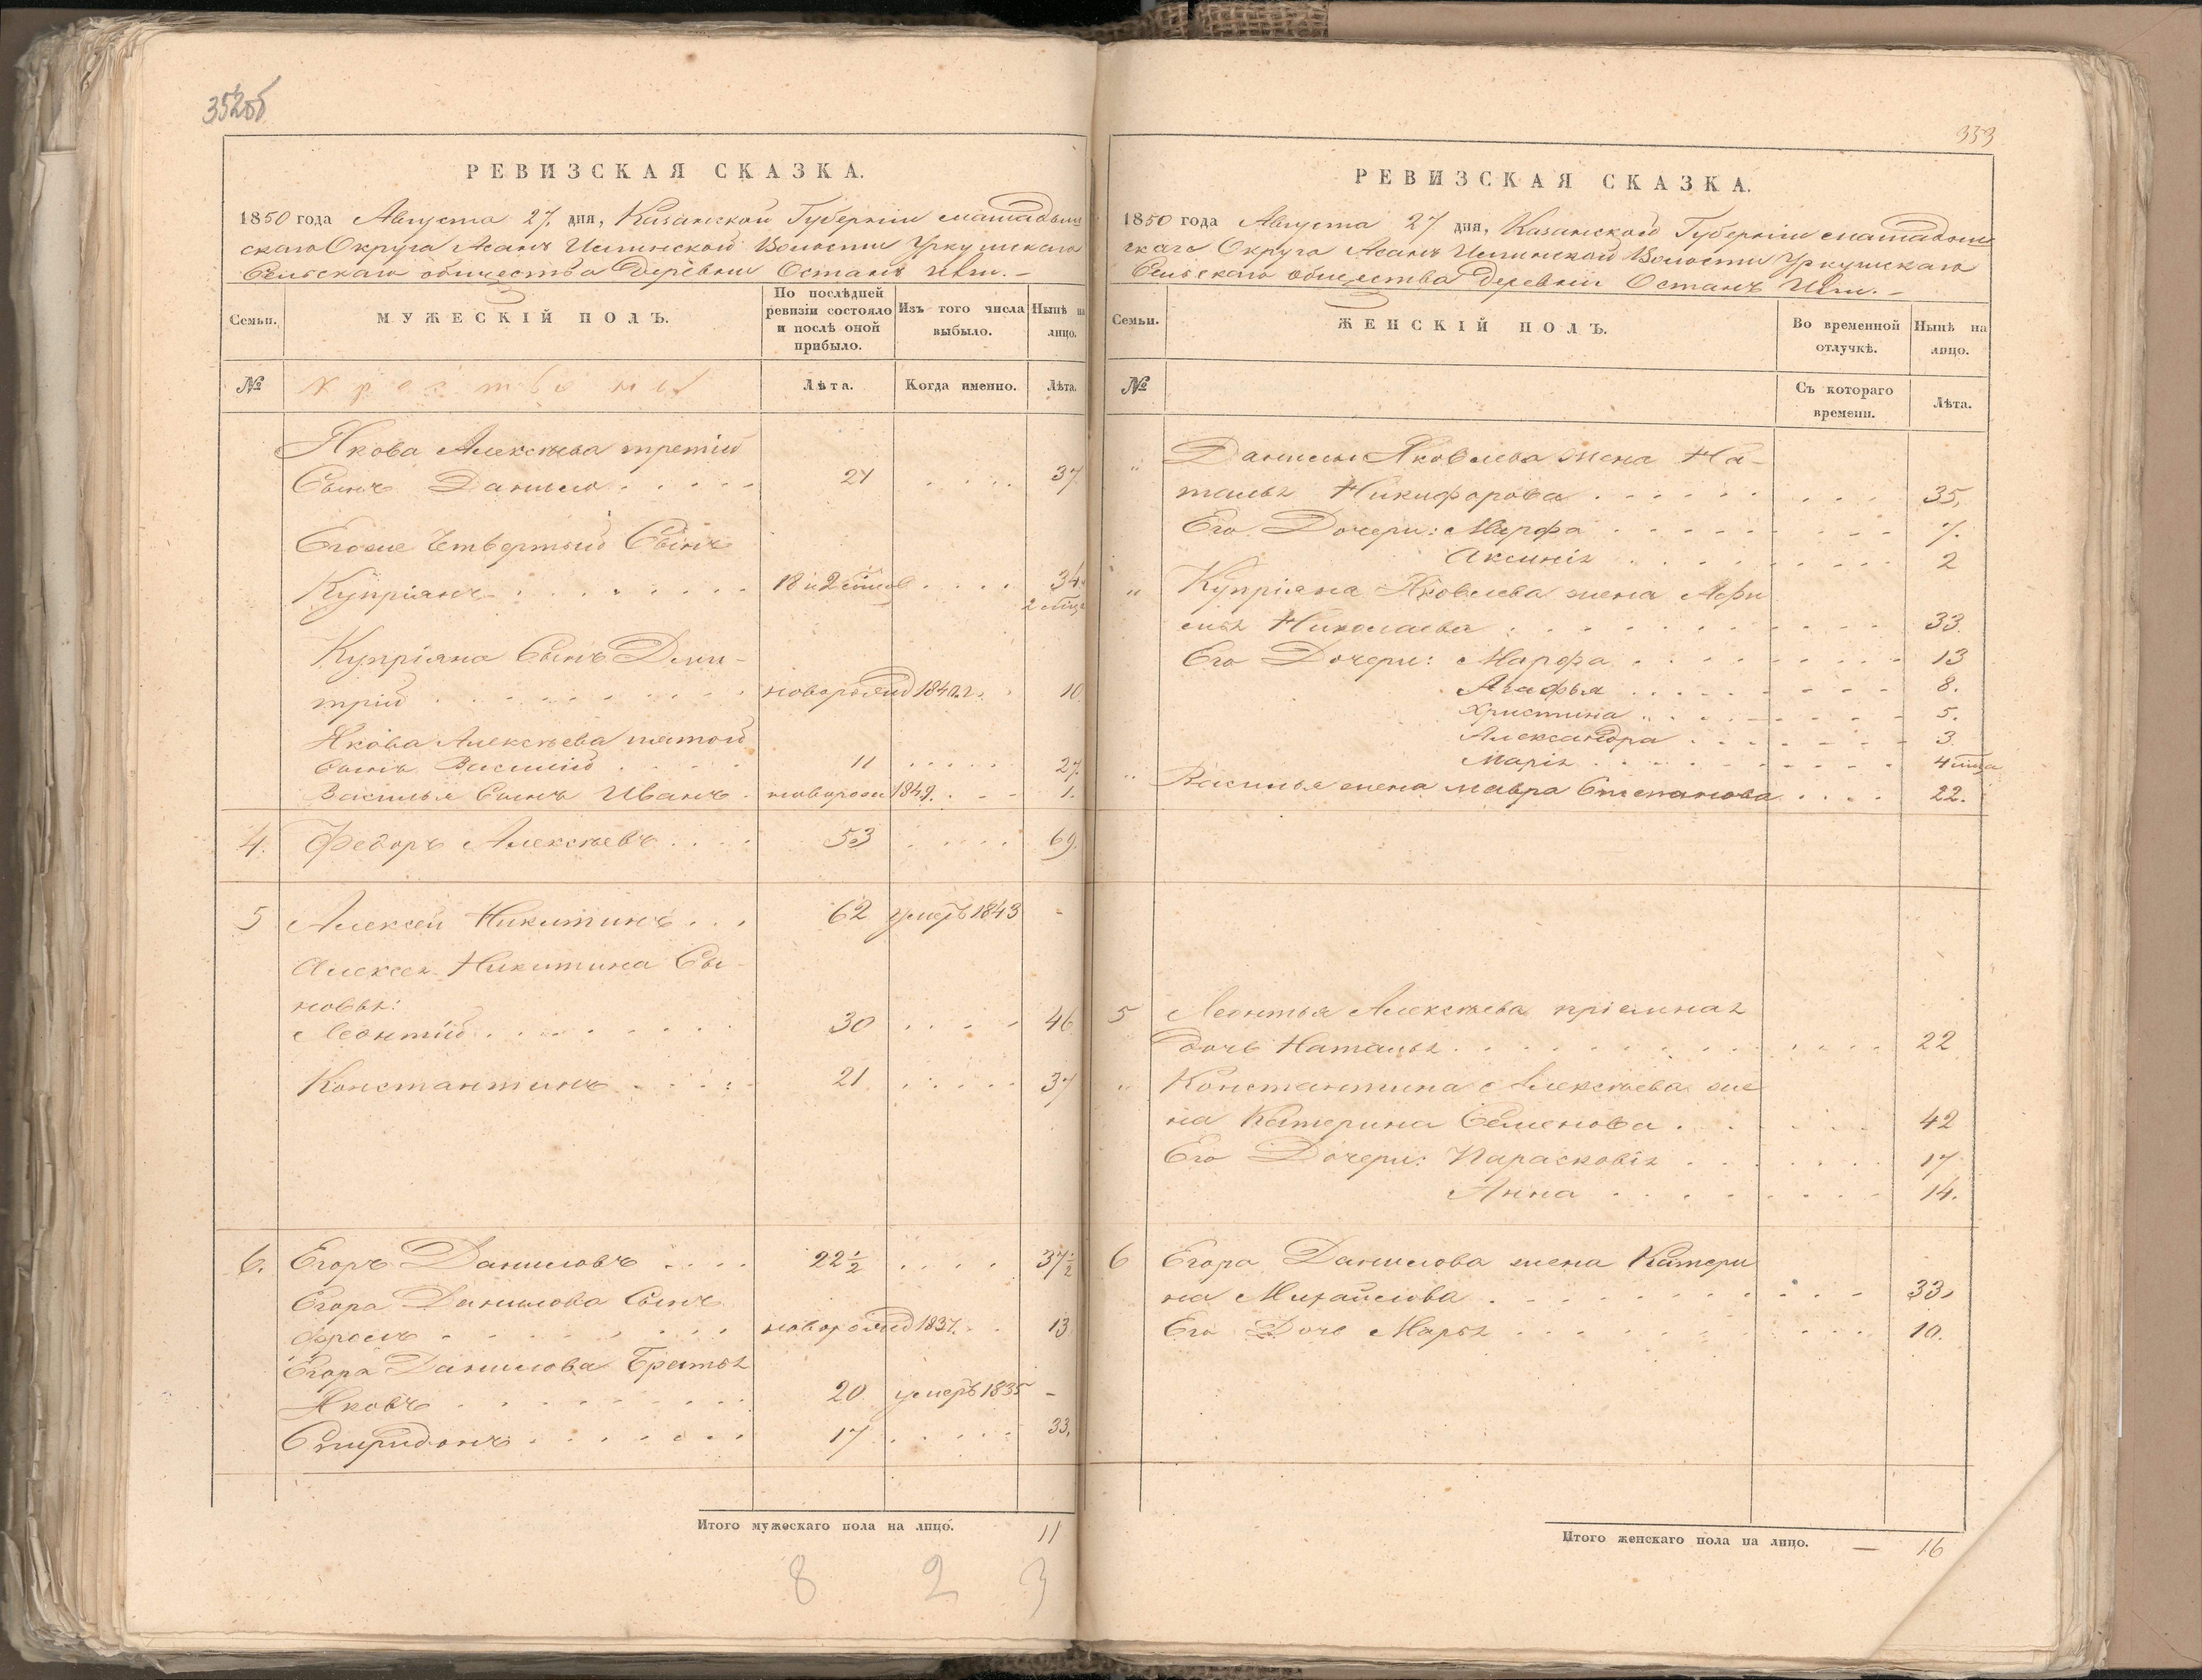 352об
РЕВИЗСКАЯ СКАЗКА.
1850 года Августа 27 дня, Казанской Губерніи мамадыш
скаго Округа Асанъ Илгинской Волости Уркушскаго
Сельскаго общества Деревни Останъ
Семьи.
МУЖЕСКІЙ ПОЛЪ.
По послѣдней ревизіи состояло и послѣ оной прибыло.
Изъ того числа выбыло.
Нынѣ на лицо.
№ Крестьяны Лѣта. Когда именно. Лѣта.
Якова Алексѣева третій
Сынъ Данило 21 37
Егоже Четвертый Сынъ
Купріянъ 18 и 2 34
2
Купріяна Сынъ Дми-
трій новорожд 1840 г. 10
Якова Алексѣева пятой
Сынъ Василій 11 27
Василья Сынъ Иванъ новорож 1849. 1.
4. Федоръ Алексѣевъ 53 69.
5 Алексей Никитинъ 62 умеръ 1843 -
Алексея Никитина Сы-
новья:
Леонтій 30 46
Константинъ 21 37
6. Егоръ Даниловъ 22 1/2 37 1/2
Егора Данилова Сынъ
Фролъ новорожд 1837. 13
Егора Данилова Братья
Яковъ 20 умеръ 1835 -
Спиридонъ 17 33.
Итого мужескаго пола на лицо. 11
8 2 3
333
РЕВИЗСКАЯ СКАЗКА.
1850 года Августа 27 дня, Казанской Губерніи мамадыш
скаго Округа Асанъ Илгинской Волости Уркушскаго
Сельскаго общества Деревни Останъ
Семьи.
ЖЕНСКІЙ ПОЛЪ.
Во временной отлучкѣ.
Нынѣ на лицо.
№ Съ котораго времени. Лѣта.
" Данилы Яковлева жена На-
талья Никифорова 35.
Его Дочери: Марфа 7.
Аксинія 2
" Купріяна Яковлева жена Афи
мья Николаева 33.
Его Дочери: Марфа 13
Агафья 8.
Христина 5.
Александра 3.
Марія 4 мца
" Василья жена мавра Степанова 22.
5 Леонтья Алексѣева пріемная
дочь Наталья 22
" Константина Алексѣева же
на Катерина Семенова 42
Его Дочери: Парасковія 17
Анна 14.
6 Егора Данилова жена Катери
на Михайлова 33.
Его Дочь Марья 10.
Итого женскаго пола на лицо. — 16